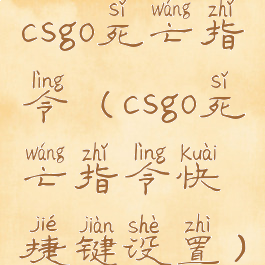 sǐ wáng zhǐ
csgo死亡指
lìng sǐ
令（csgo死
wáng zhǐ lìng kuài
亡指令快
jié jiàn shè zhì
捷键设置）